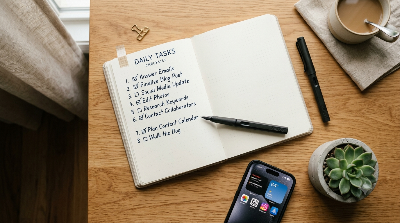 DAILY TASKS
1. ☑ Answer Emails
2. ☑ Finalize Blog Post
3. ☐ Social Media Update
4. ☑ Edit Photos
5. ☐ Research Keywords
6. ☑ Contact Collaborators
7. ☑ Plan Content Calendar
8. ☐ Walk the Dog